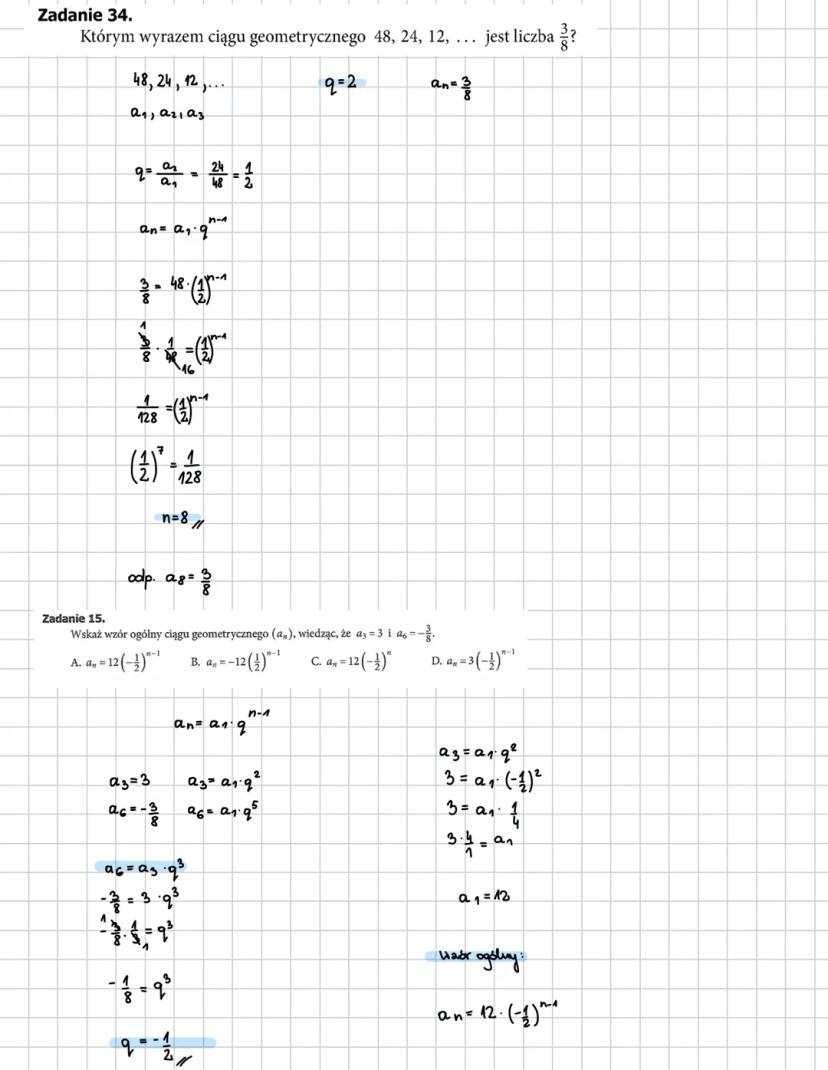 Zadanie 34.
Którym wyrazem ciągu geometrycznego 48, 24, 12, … jest liczba 3/8?
48, 24, 12, ... q=2 an= 3/8
a₁, a₂, a₃
q= a₂/a₁ = 24/48 = 1/2
an= a₁·q^(n-1)
3/8 = 48·(1/2)^(n-1)
1
3/8 · 1/48 = (1/2)^(n-1)
16
1/128 = (1/2)^(n-1)
(1/2)^7 = 1/128
n=8
odp. a₈= 3/8
Zadanie 15.
Wskaż wzór ogólny ciągu geometrycznego (aₙ), wiedząc, że a₃ = 3 i a₆ = −3/8.
A. aₙ = 12(−1/2)^(n−1) B. aₙ = −12(1/2)^(n−1) C. aₙ = 12(−1/2)^n D. aₙ = 3(−1/2)^(n−1)
an= a₁·q^(n-1)
a₃=3 a₃= a₁·q²
a₆=-3/8 a₆= a₁·q⁵
a₆= a₃·q³
-3/8 = 3·q³
1
-3/8 · 1/3 = q³
1
-1/8 = q³
q = -1/2
a₃= a₁·q²
3= a₁·(-1/2)²
3= a₁· 1/4
3·4/1 = a₁
a₁=12
Wzór ogólny:
an= 12·(-1/2)^(n-1)